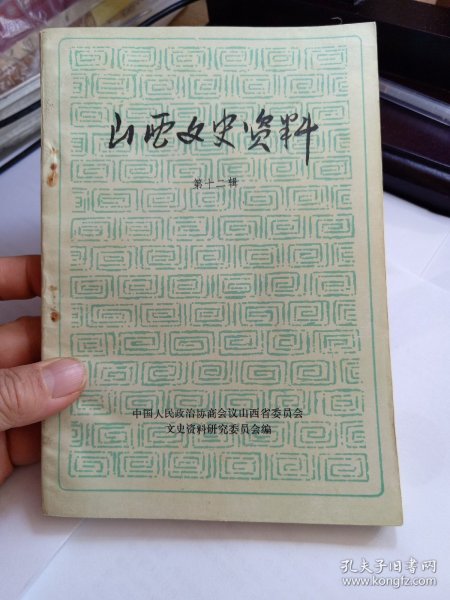 山西文史资料
第十二辑
中国人民政治协商会议山西省委员会
文史资料研究委员会编
孔夫子旧书网
www.kongfz.com